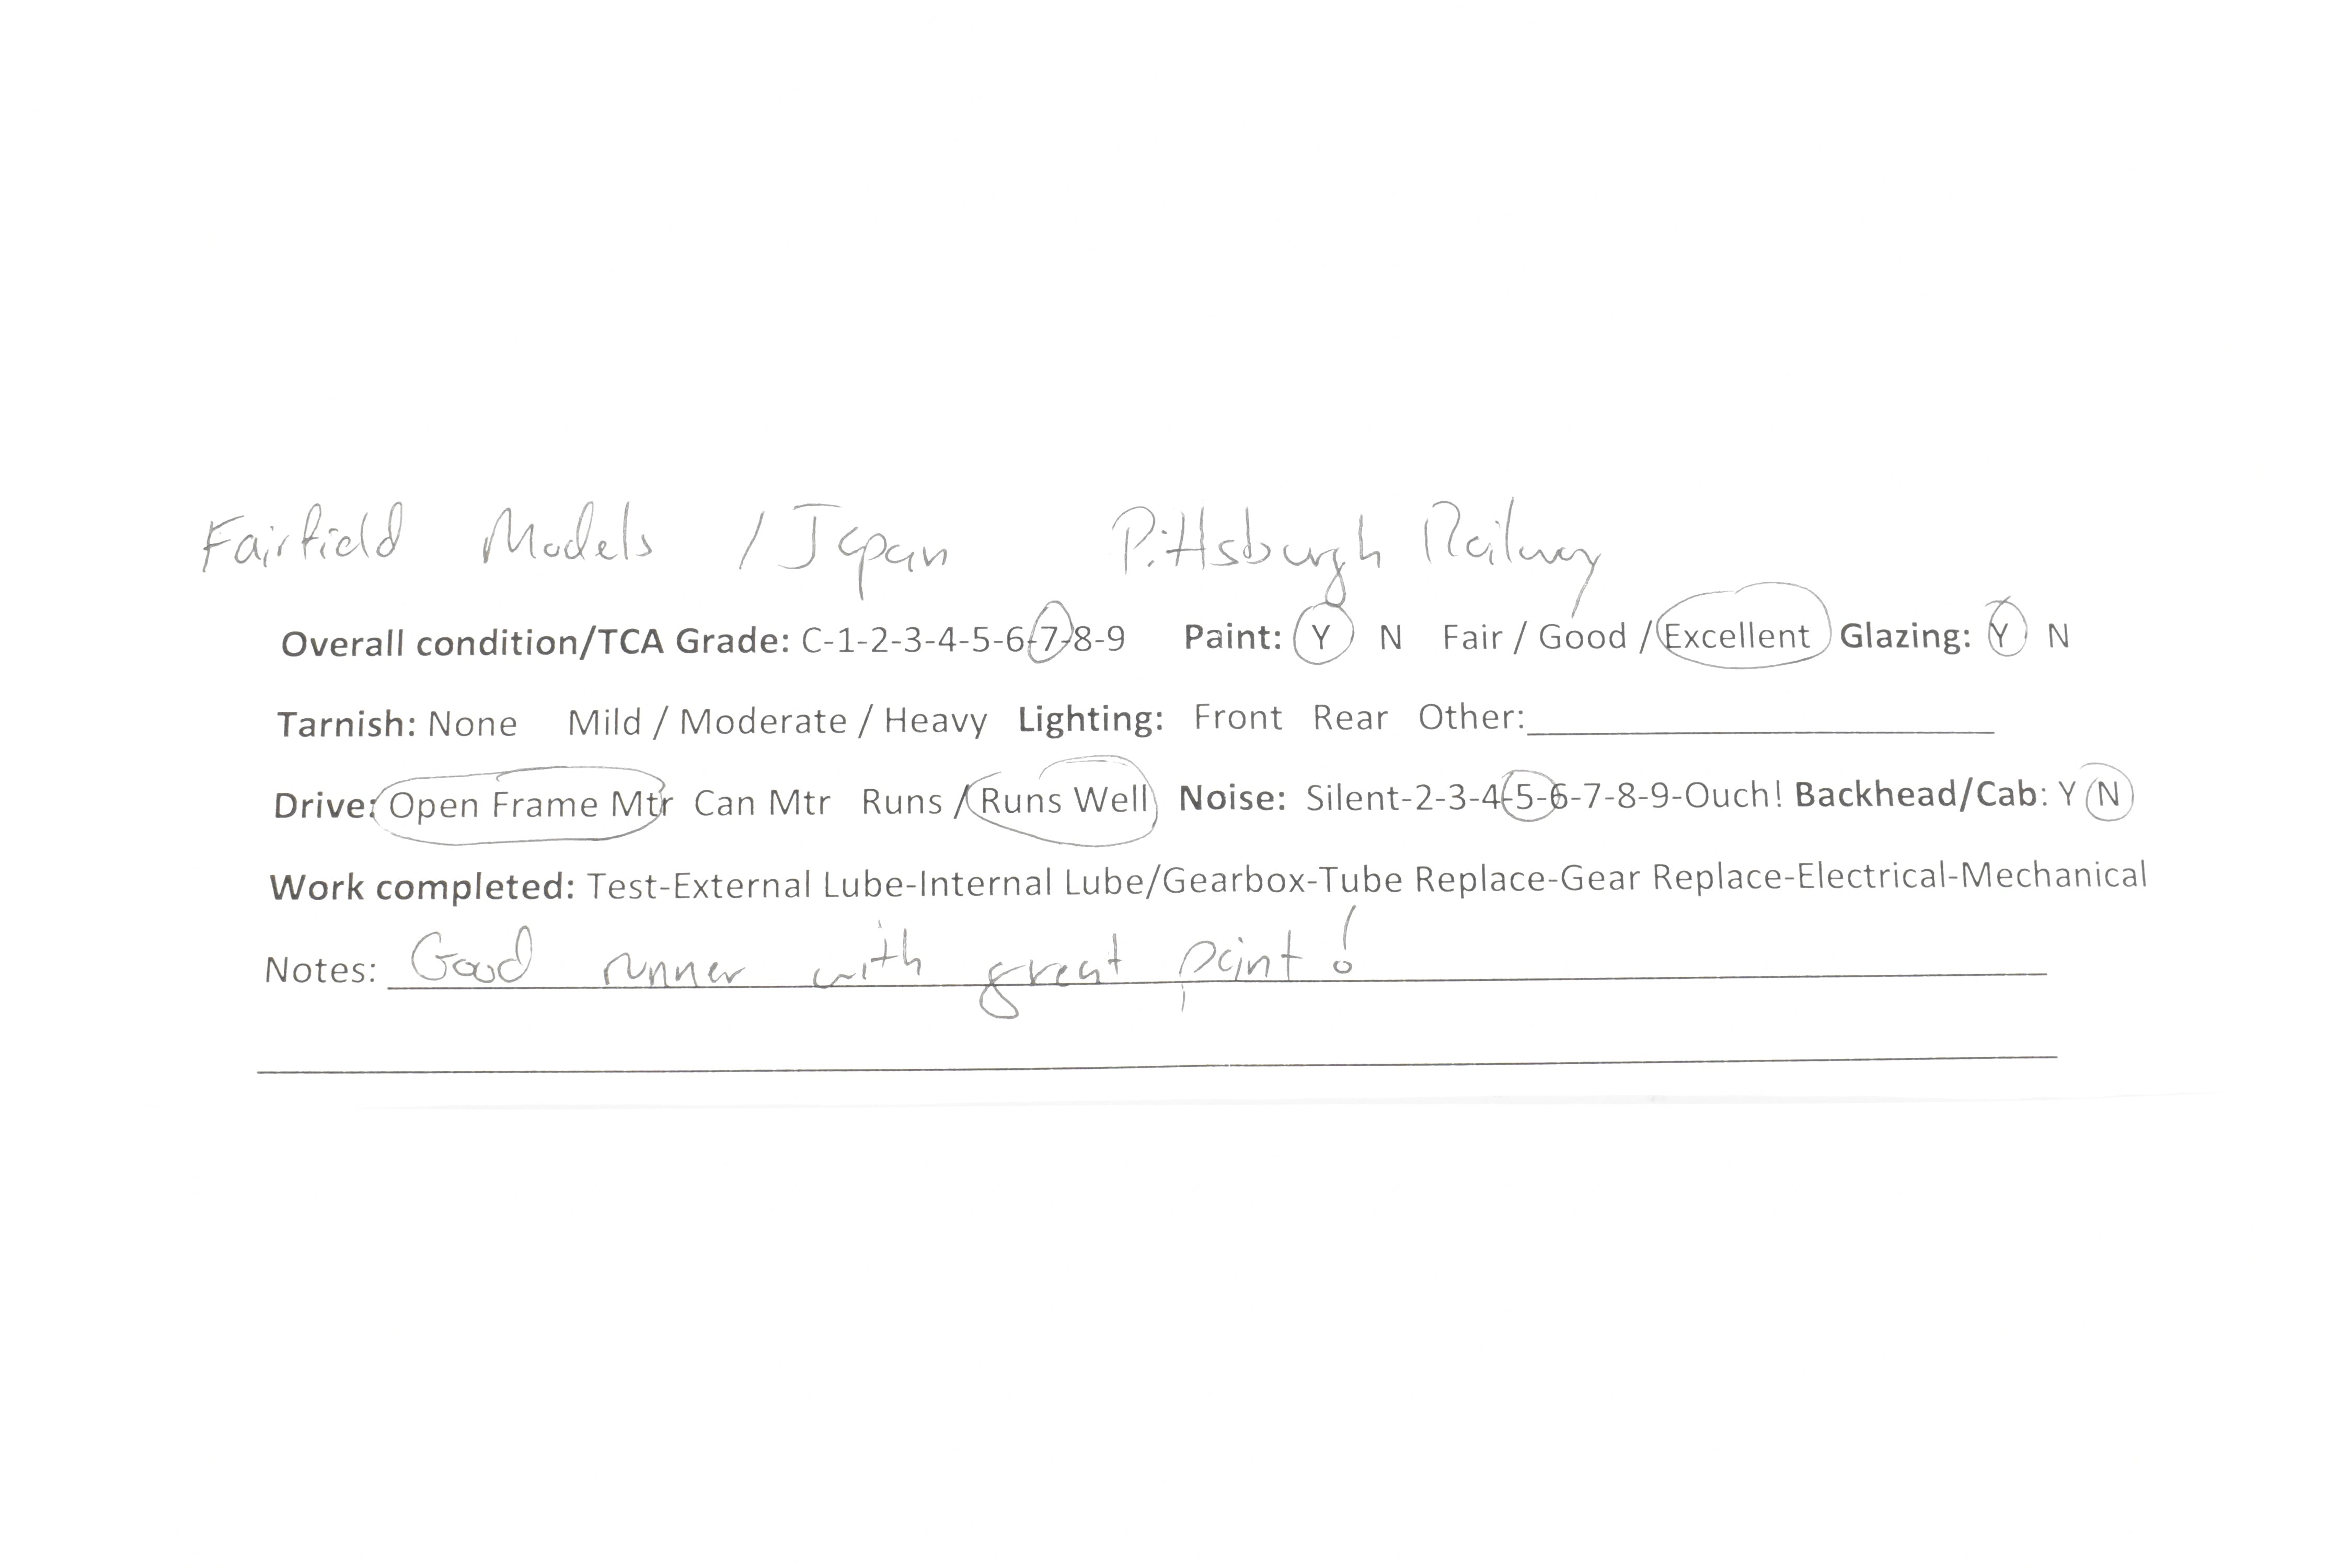 Fairfield Models / Japan Pittsburgh Railway
Overall condition/TCA Grade: C-1-2-3-4-5-6-7-8-9 Paint: Y N Fair / Good / Excellent Glazing: Y N
Tarnish: None Mild / Moderate / Heavy Lighting: Front Rear Other:
Drive: Open Frame Mtr Can Mtr Runs / Runs Well Noise: Silent-2-3-4-5-6-7-8-9-Ouch! Backhead/Cab: Y N
Work completed: Test-External Lube-Internal Lube/Gearbox-Tube Replace-Gear Replace-Electrical-Mechanical
Notes: Good runner with great paint!